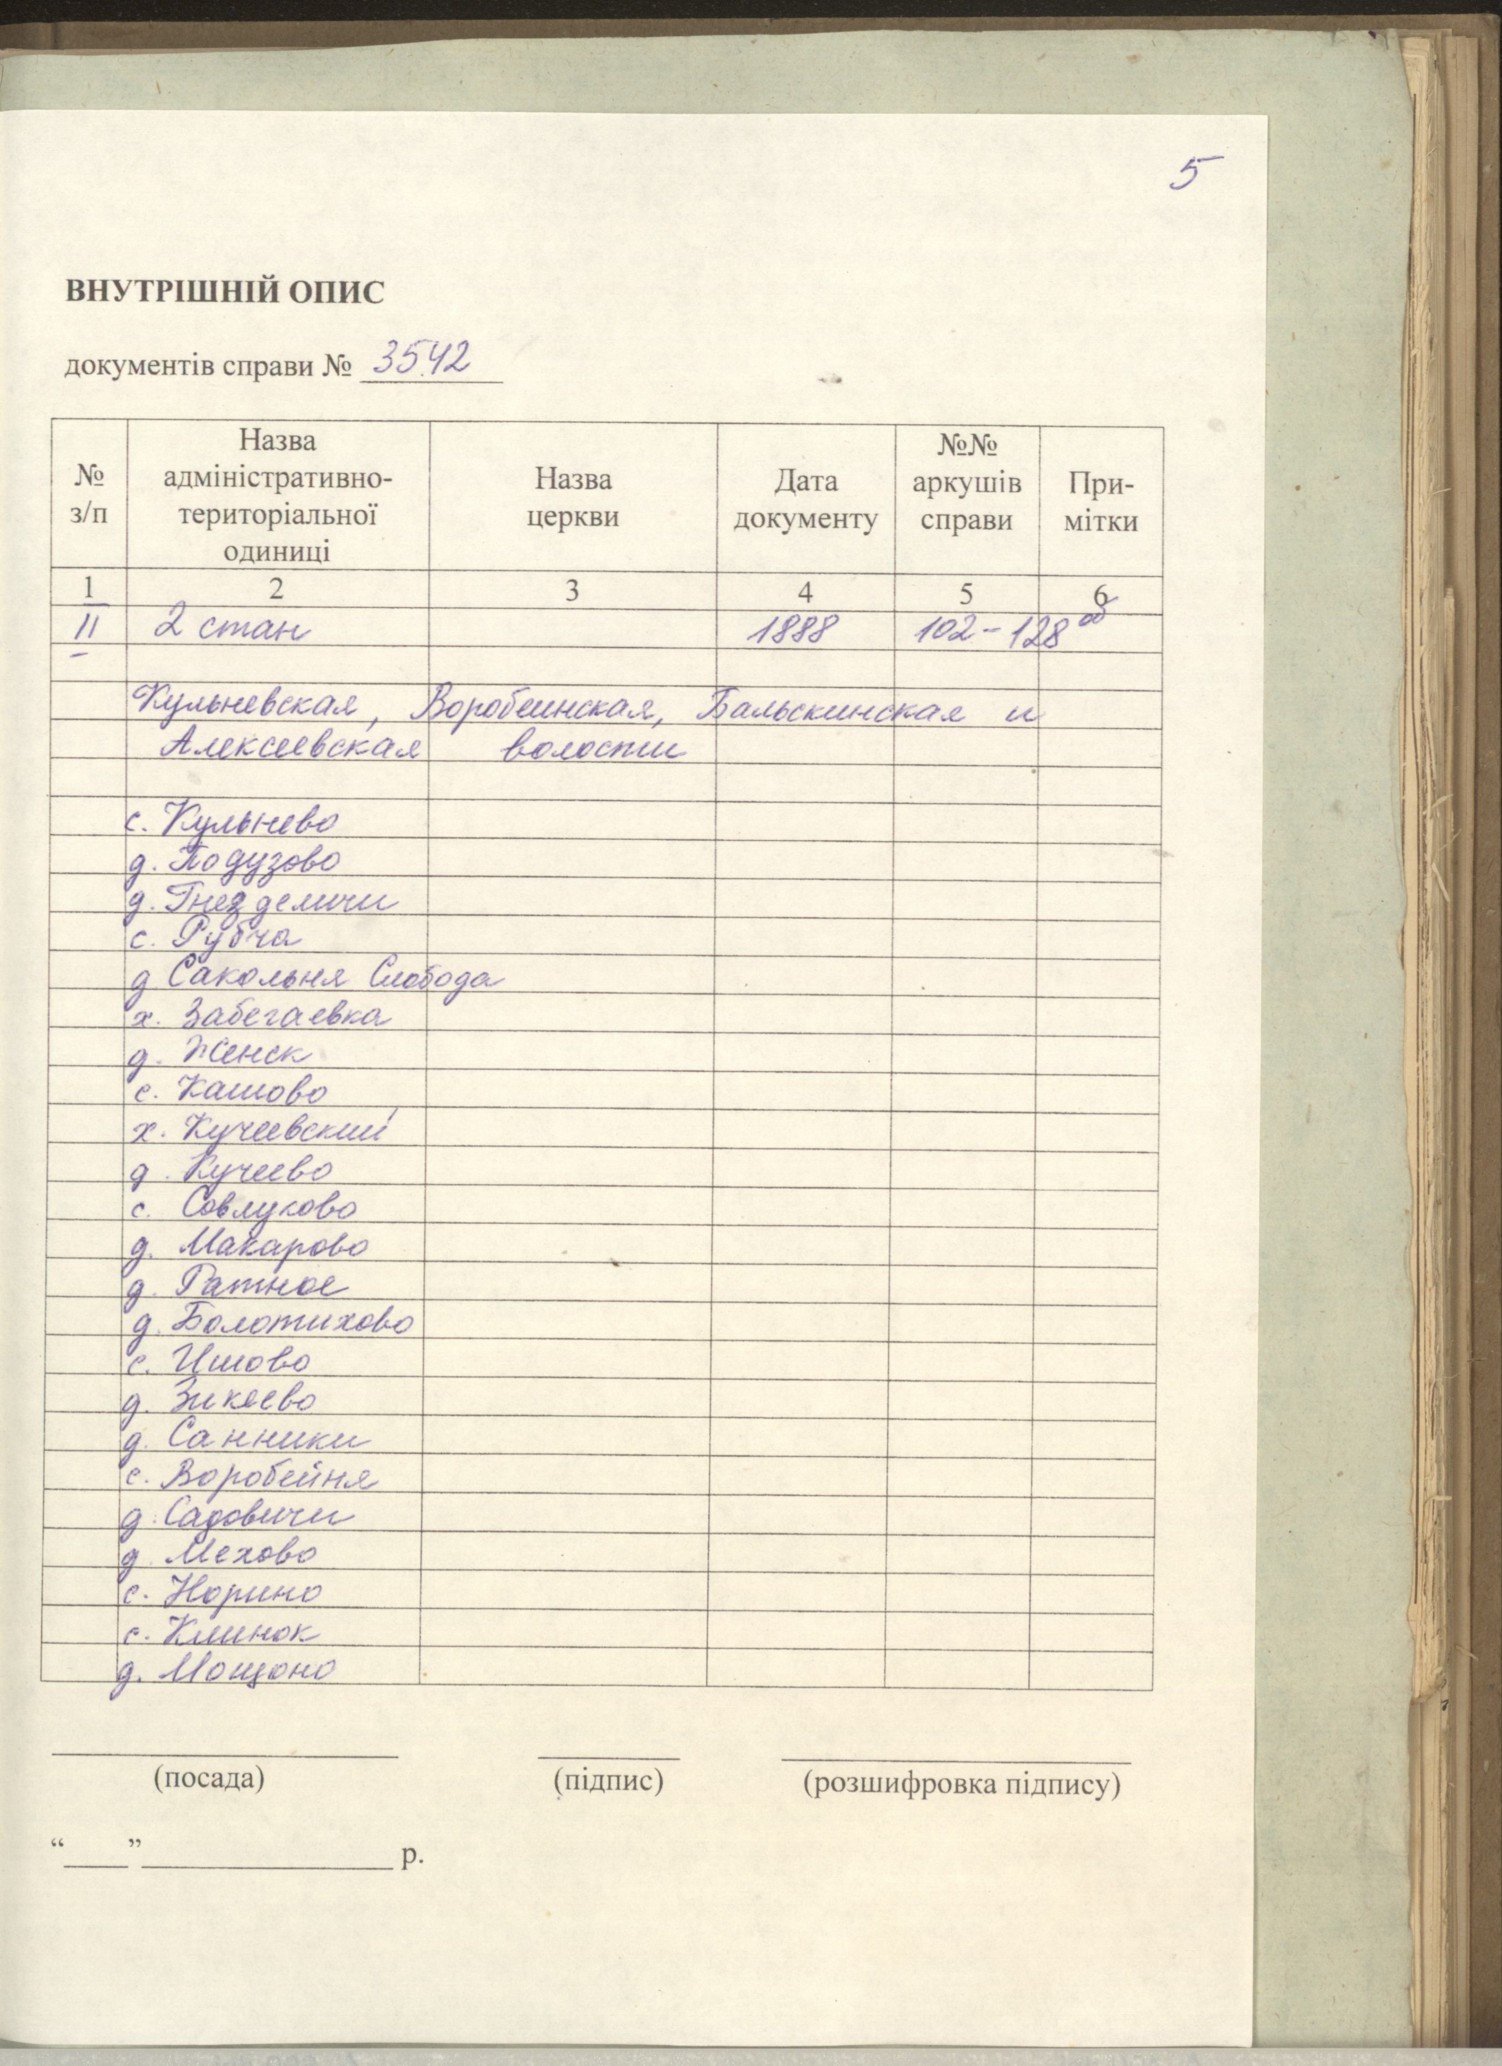 5
ВНУТРІШНІЙ ОПИС
документів справи № 3542
№ з/п
Назва адміністративно-територіальної одиниці
Назва церкви
Дата документу
№№ аркушів справи
При-мітки
1 2 3 4 5 6
II 2 стан 1888 102-128 об
Кульневская, Воробеинская, Бальскинская и
Алексеевская волости
с. Кульнево
д. Подузово
д. Гнезделичи
с. Рубча
д Сакольня Слобода
х. Забегаевка
д. Женск
с. Кашово
х. Кучеевский
д. Кучеево
с. Совлуково
д. Макарово
д. Ратное
д. Болотихово
с. Ишово
д. Зикеево
д. Санники
с. Воробейня
д. Садовичи
д. Мехово
с. Норино
с. Клинок
д. Мощоно
(посада) (підпис) (розшифровка підпису)
“____”________________ р.